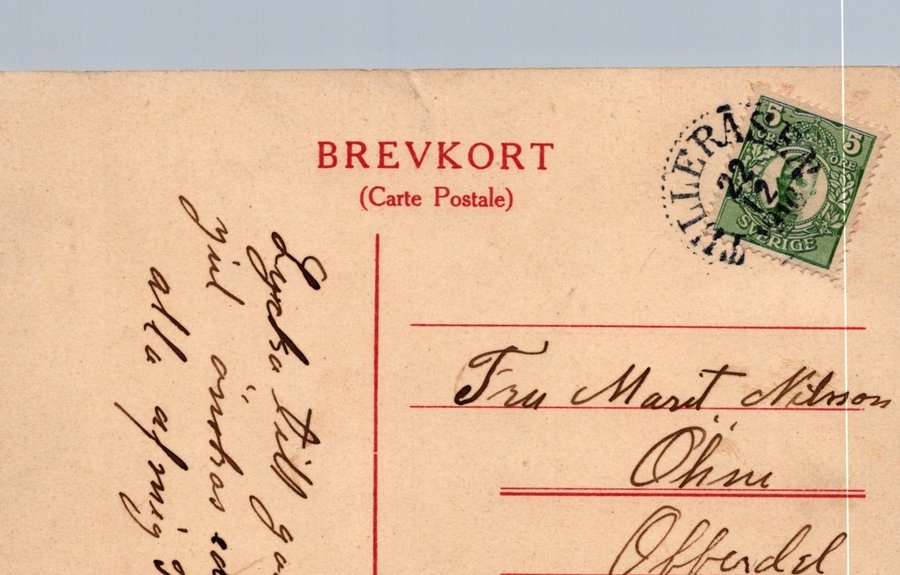 BREVKORT
(Carte Postale)
5 5
SVERIGE
22
12
Lycka till
jul önskas
alla af mig
Fru Marit Nilsson
Öhne
Offerdal